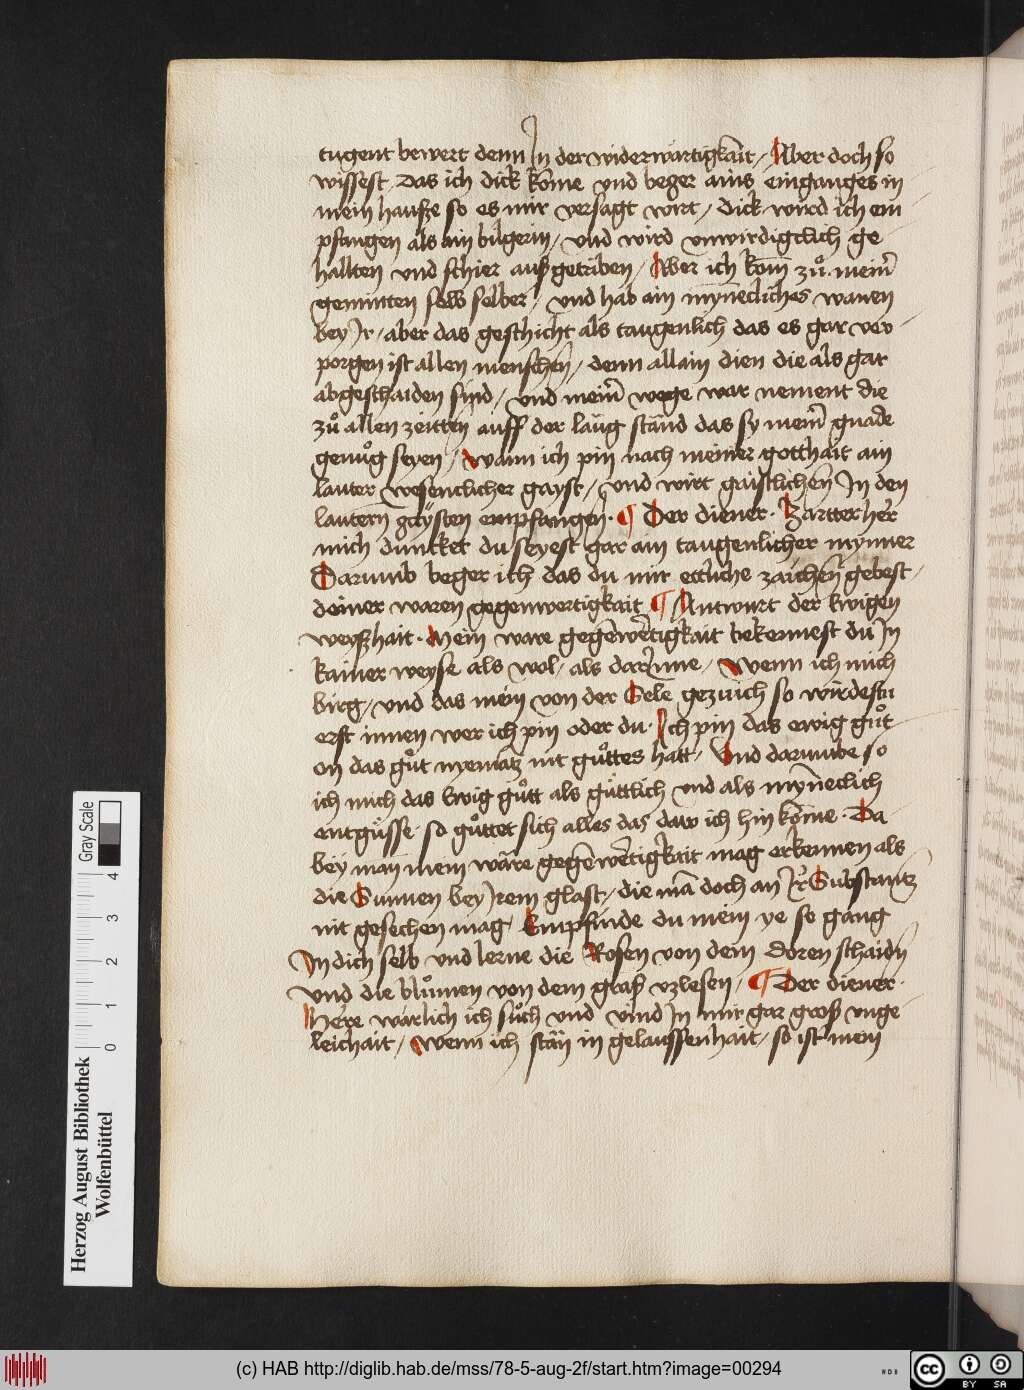 tugent bewert denn Jn der widerwärtigkäit / Aber doch so
wissest Das ich dick kōme vnd beger ains eingangs in
mein hauße so es mir versagt wirt / dick wird ich em
pfangen als ain bilgerin / vnd wird vnwirdigclich ge
hallten vnd schier außgetriben / Aber ich kom̄ zů mein̄
geminten selb selber / vnd hab ain mȳneclīches wanen
bey Jr / aber das geschicht als taugenlich das es gar ver
porgen ist allen menschen / denn allain dien die als gar
abgeschaiden sind / vnd mein̄ wege war nement die
zů allen zeitten auff der laug ständ das sy mein̄ gnade
genůg seyen / Wann ich pin nach meiner gotthait ain
lauter wesenclicher gayst / vnd wirt gaistlichen Jn den
lautern gaÿsten empfangen · ¶ Der diener · Zartter her̄
mich duncket du seyest gar ain taugenlicher mynner
Darumb beger ich das du mir ettliche zaichen gebest
deiner waren gegenwertigkait ¶ Antwurt der Ewigen
weyßhait · Mein ware gegēwertigkait bekennest du Jn
kainer weyse als wol / als darinne / Wenn ich mich
birg / vnd das mein von der Sele gezuich so wirdestu
erst innen wer ich pin oder du · Ich pin das ewig gůt
on das gůt nyemātz nit gůttes hatt / Vnd darumbe so
ich mich das Ewig gůtt als güttlich vnd als mȳneclich
entgüsse · so gůttet sich alles das daw ich hin kōme · Da
bey man mein wäre gegēwertigkait mag erkennen als
die Sunnen bey Jrem glast / die mā doch an Jr Substantz
nit gesechen mag / Empfinde du mein ye so gang
Jn dich selb vnd lerne die Rosen von dem doren schaidn̄
vnd die blůmen von dem graß vzlesen / ¶ Der diener ·
Here warlich ich sůch vnd vind Jn mir gar groß vnge
leichait / Wenn ich stän in gelaussenhait / so ist mein
Herzog August Bibliothek
Wolfenbüttel
0 1 2 3 4
Gray Scale
(c) HAB http://diglib.hab.de/mss/78-5-aug-2f/start.htm?image=00294
WDB
cc BY SA